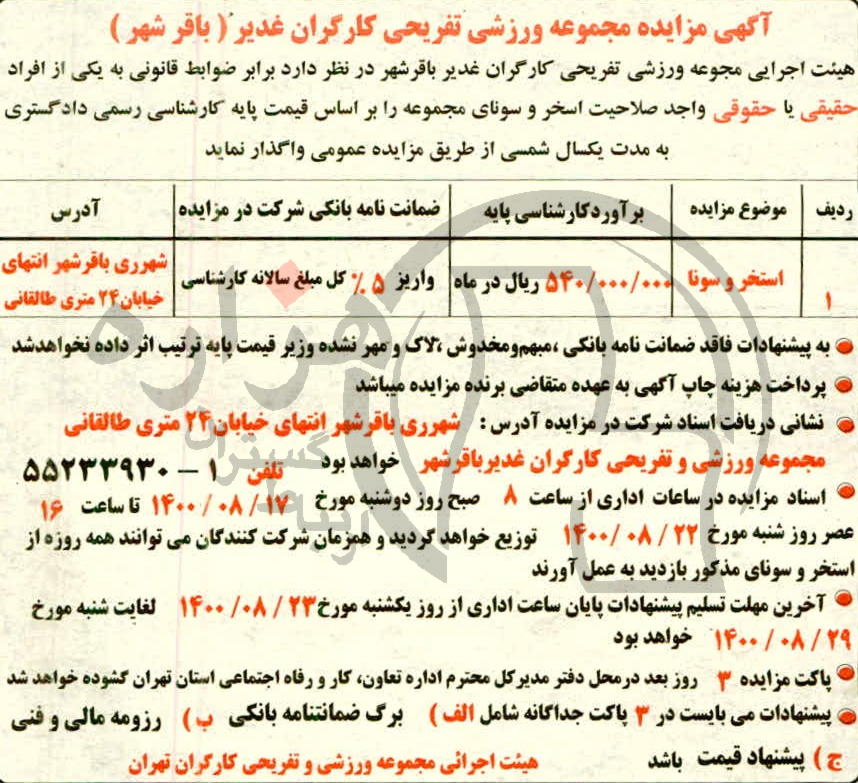 آگهی مزایده مجموعه ورزشی تفریحی کارگران غدیر ( باقر شهر )
هیئت اجرایی مجوعه ورزشی تفریحی کارگران غدیر باقرشهر در نظر دارد برابر ضوابط قانونی به یکی از افراد
حقیقی یا حقوقی واجد صلاحیت اسخر و سونای مجموعه را بر اساس قیمت پایه کارشناسی رسمی دادگستری
به مدت یکسال شمسی از طریق مزایده عمومی واگذار نماید
ردیف موضوع مزایده برآوردکارشناسی پایه ضمانت نامه بانکی شرکت در مزایده آدرس
۱ استخر و سونا ۵۴۰/۰۰۰/۰۰۰ ریال در ماه واریز ۵ ٪ کل مبلغ سالانه کارشناسی شهرری باقرشهر انتهای
خیابان۲۴ متری طالقانی
به پیشنهادات فاقد ضمانت نامه بانکی ،مبهم‌ومخدوش ،لاک و مهر نشده وزیر قیمت پایه ترتیب اثر داده نخواهدشد
پرداخت هزینه چاپ آگهی به عهده متقاضی برنده مزایده میباشد
نشانی دریافت اسناد شرکت در مزایده آدرس : شهرری باقرشهر انتهای خیابان۲۴ متری طالقانی
مجموعه ورزشی و تفریحی کارگران غدیرباقرشهر خواهد بود تلفن ۱ – ۵۵۲۳۳۹۳۰
اسناد مزایده در ساعات اداری از ساعت ۸ صبح روز دوشنبه مورخ ۱۷ / ۰۸ / ۱۴۰۰ تا ساعت ۱۶
عصر روز شنبه مورخ ۲۲ / ۰۸ / ۱۴۰۰ توزیع خواهد گردید و همزمان شرکت کنندگان می توانند همه روزه از
استخر و سونای مذکور بازدید به عمل آورند
آخرین مهلت تسلیم پیشنهادات پایان ساعت اداری از روز یکشنبه مورخ ۲۳ / ۰۸ / ۱۴۰۰ لغایت شنبه مورخ
۲۹ / ۰۸ / ۱۴۰۰ خواهد بود
پاکت مزایده ۳ روز بعد درمحل دفتر مدیرکل محترم اداره تعاون، کار و رفاه اجتماعی استان تهران گشوده خواهد شد
پیشنهادات می بایست در ۳ پاکت جداگانه شامل الف ) برگ ضمانتنامه بانکی ب ) رزومه مالی و فنی
ج ) پیشنهاد قیمت باشد هیئت اجرائی مجموعه ورزشی و تفریحی کارگران تهران
هزاره